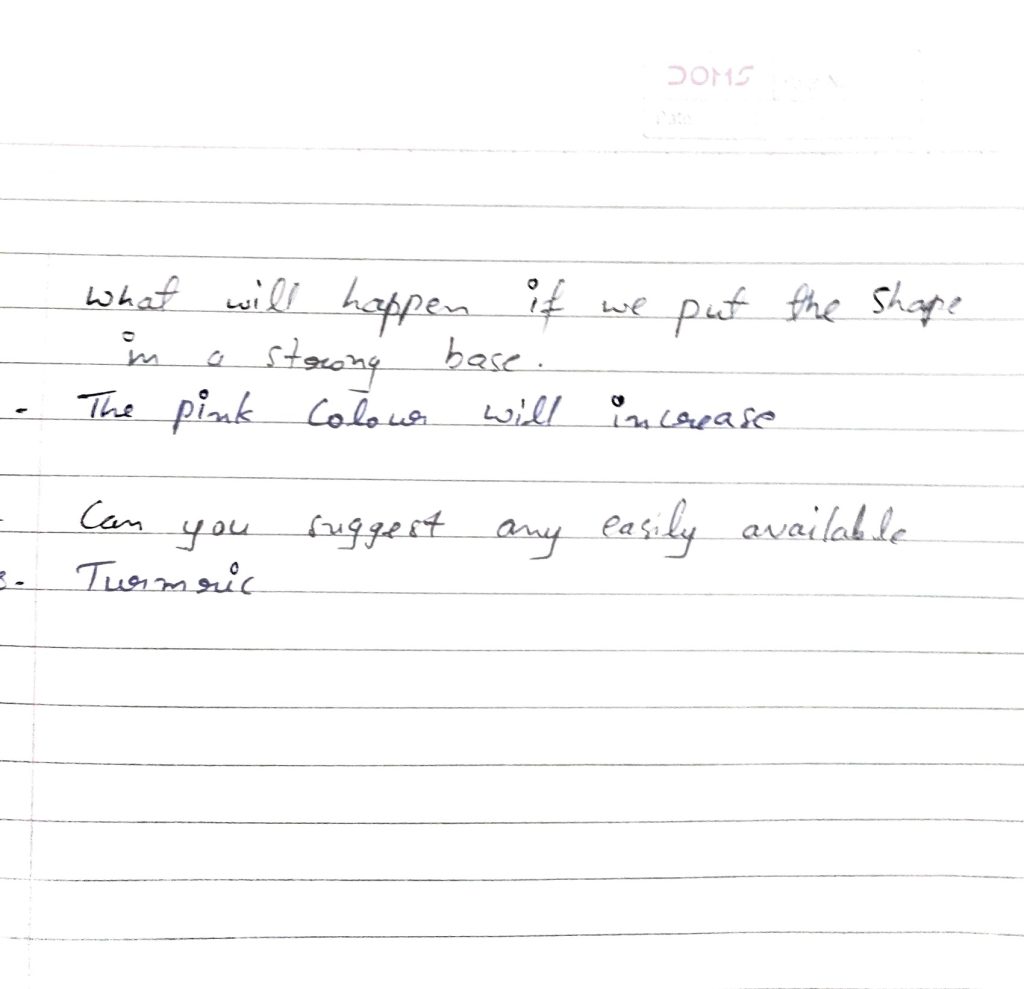 DOMS
Date
What will happen if we put the shape
in a strong base.
- The pink Colour will increase
Can you suggest any easily available
- Turmeric